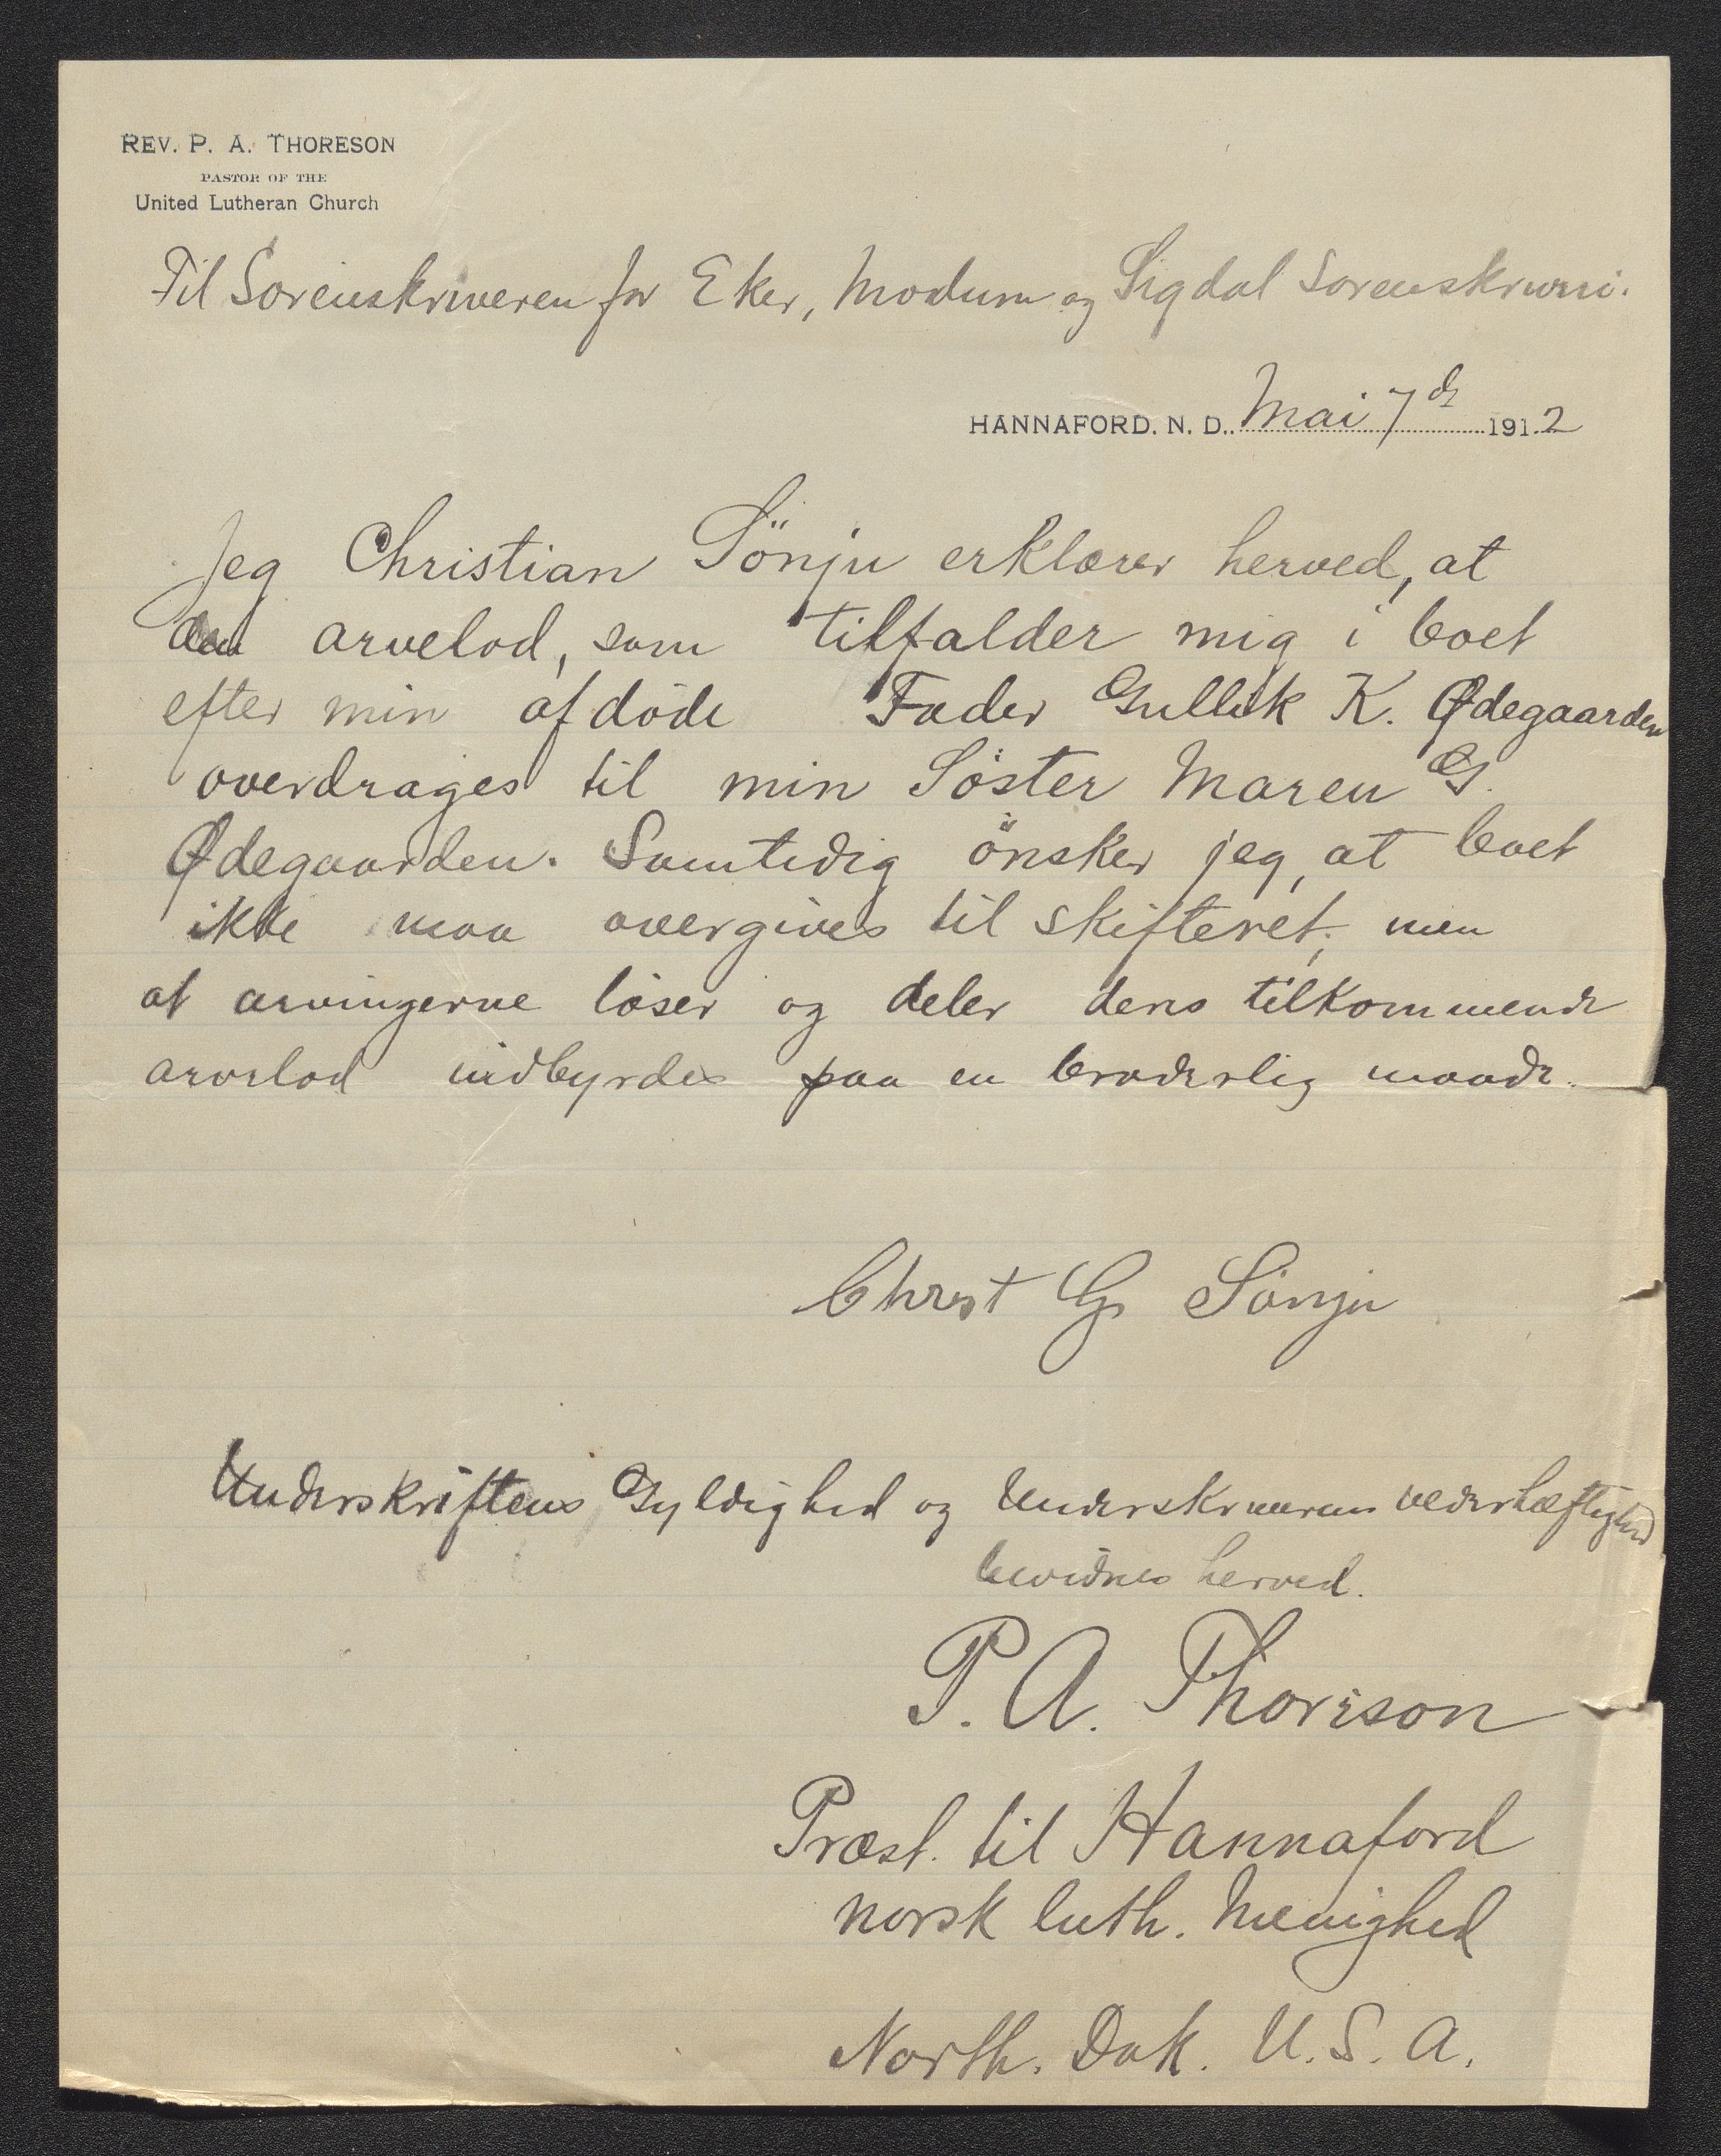 REV. P. A. THORESON
PASTOR OF THE
United Lutheran Church
Til Sorenskriveren for Eker, Modum og Sigdal Sorenskriveri.
HANNAFORD. N. D.. Mai 7de 1912
Jeg Christian Sönju erklærer herved, at
den arvelod, som tilfalder mig i boet
efter min afdöde Fader Gullik K. Ødegaarden
overdrages til min Söster Maren G.
Ødegaarden. Samtidig önsker jeg, at boet
ikke maa overgives til skifteret, men
at arvingerne löser og deler dens tilkommende
arvelod indbyrdes paa en broderlig maade.
Christ G Sönju
Underskriftens Gyldighed og Underskriverens vederhæftighed
bevidnes herved.
P. A. Thoreson
Præst. til Hannaford
norsk luth. Menighed
North. Dak. U. S. A.